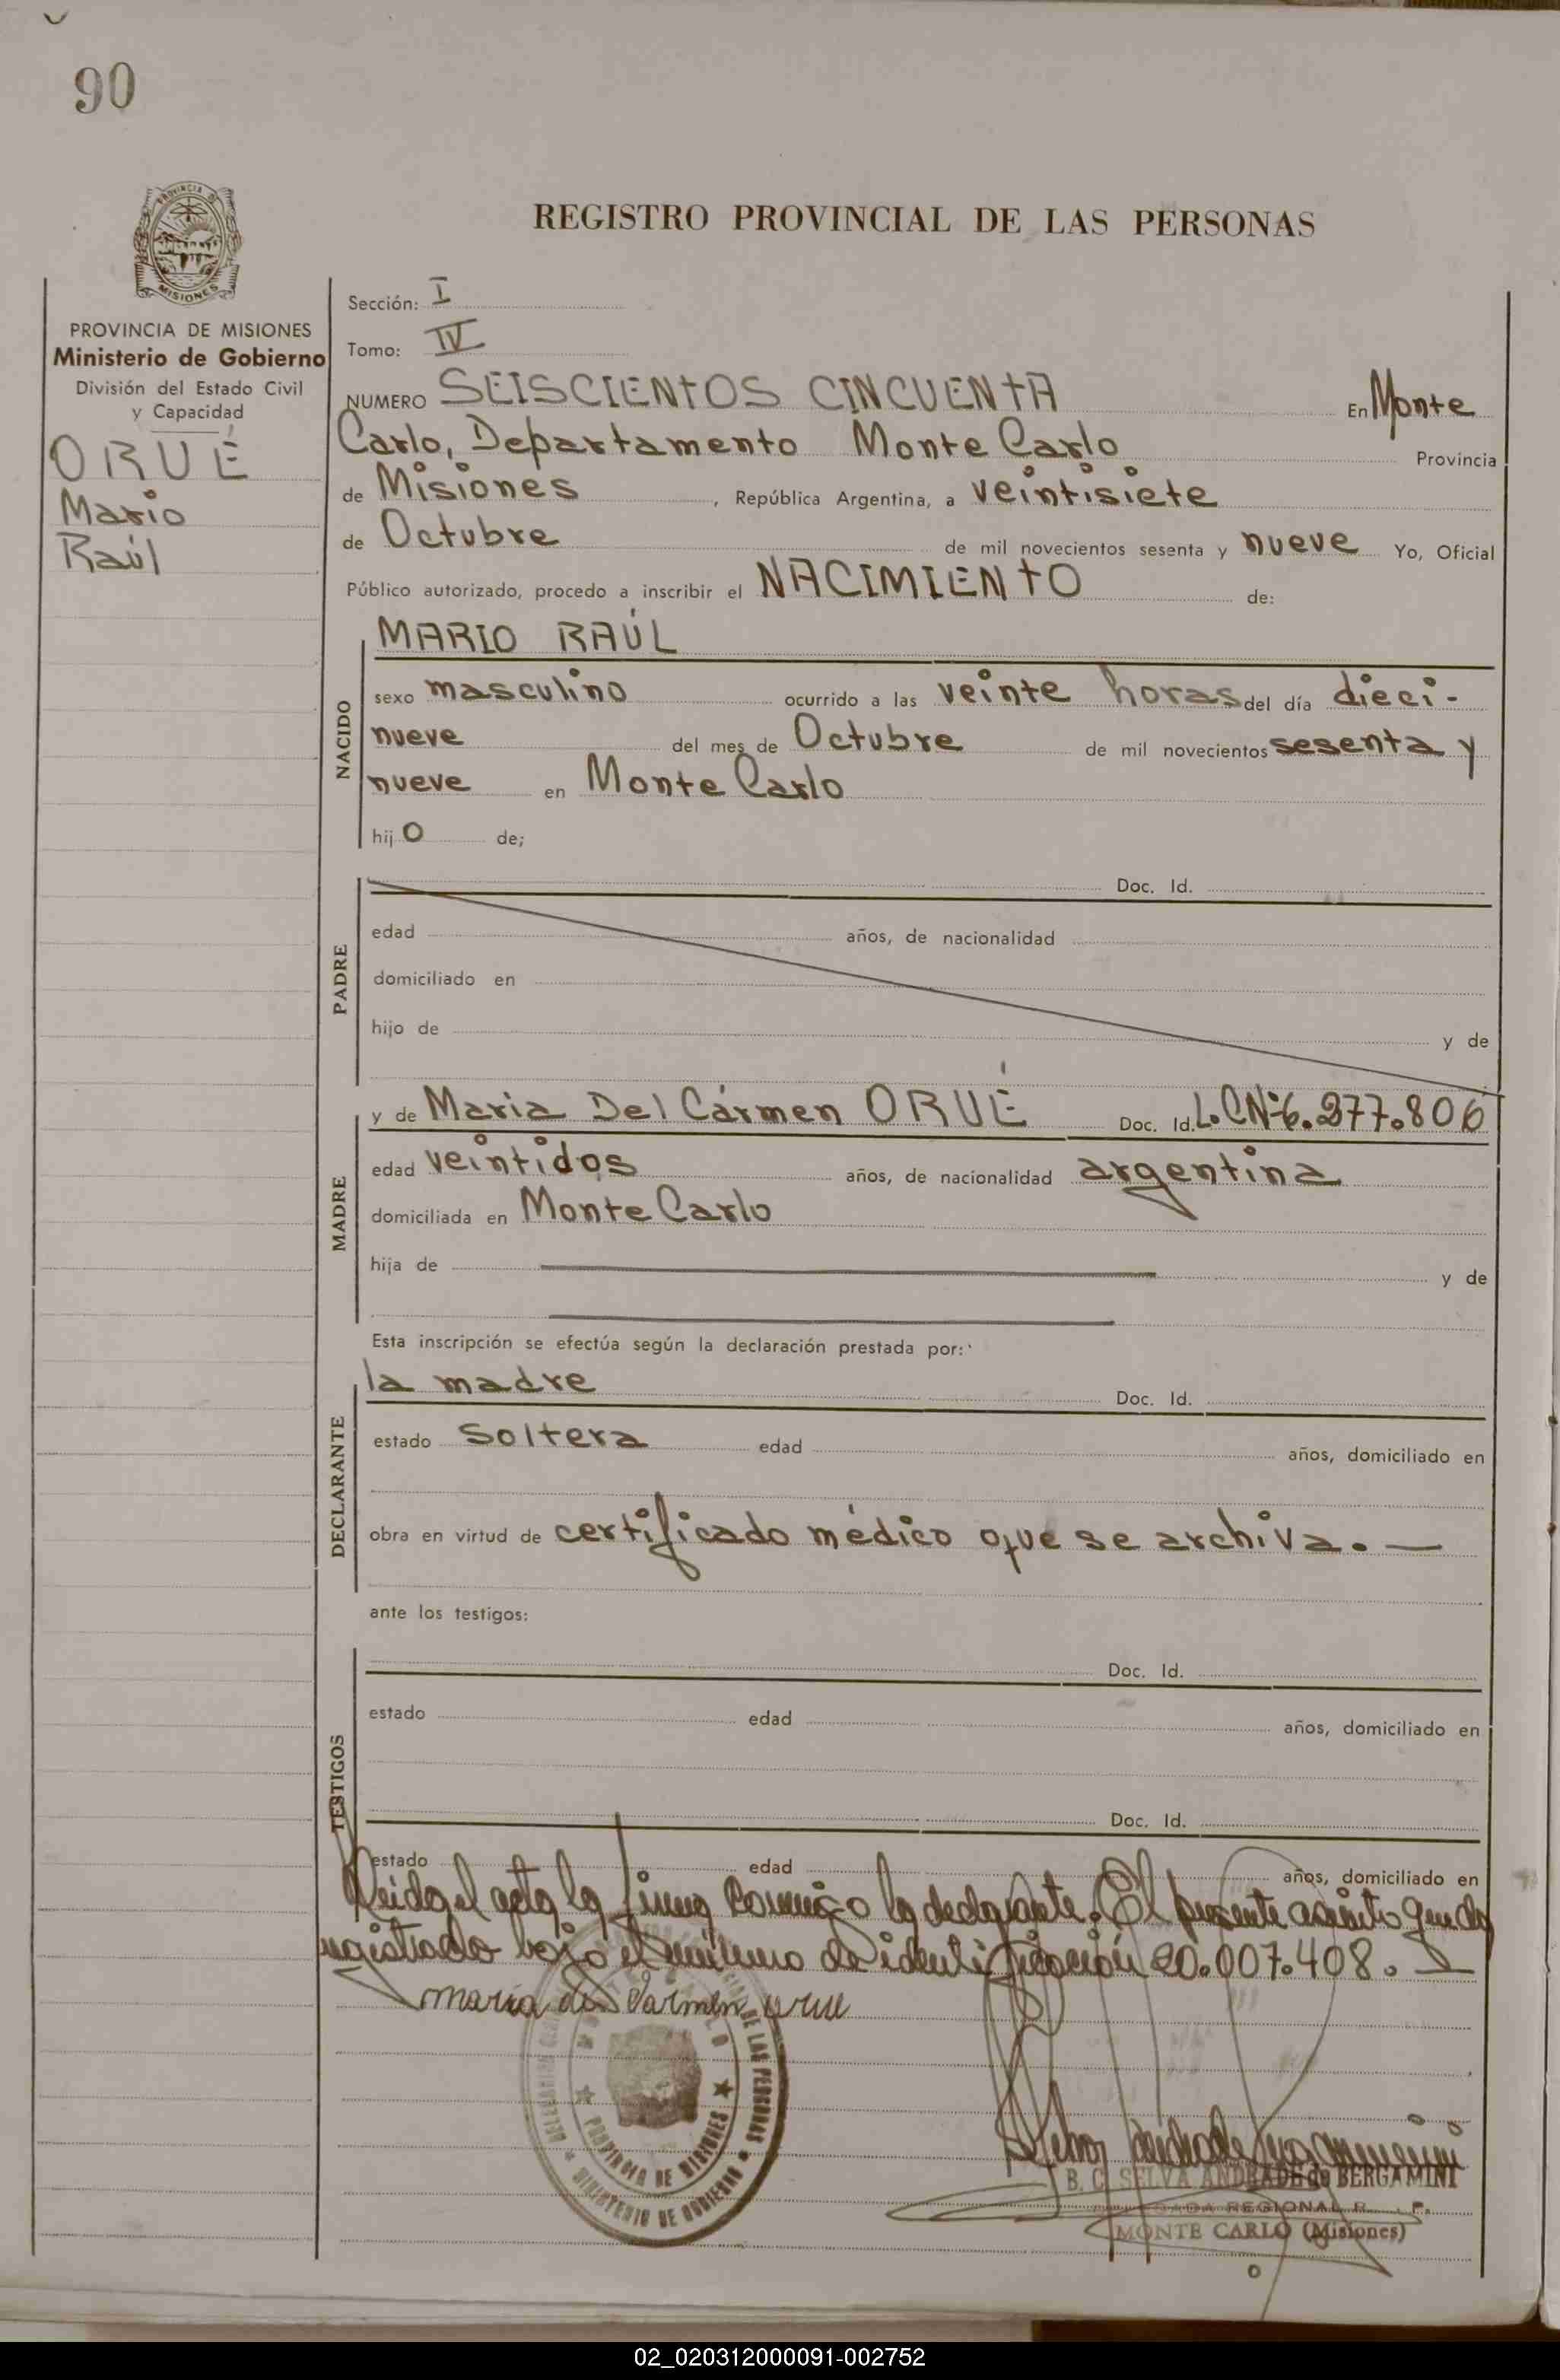 90
PROVINCIA DE MISIONES
REGISTRO PROVINCIAL DE LAS PERSONAS
PROVINCIA DE MISIONES
Ministerio de Gobierno
División del Estado Civil
y Capacidad
ORUÉ
Mario
Raúl
Sección: I
Tomo: IV
NUMERO SEISCIENTOS CINCUENTA En Monte
Carlo, Departamento Monte Carlo Provincia
de Misiones, República Argentina, a veintisiete
de Octubre de mil novecientos sesenta y nueve Yo, Oficial
Público autorizado, procedo a inscribir el NACIMIENTO de:
NACIDO
MARIO RAÚL
sexo masculino ocurrido a las veinte horas del día dieci-
nueve del mes de Octubre de mil novecientos sesenta y
nueve en Monte Carlo
hijo de;
PADRE
Doc. Id.
edad años, de nacionalidad
domiciliado en
hijo de y de
MADRE
y de Maria Del Cármen ORUÉ Doc. Id. L.C.Nº 6.277.806
edad veintidos años, de nacionalidad argentina
domiciliada en Monte Carlo
hija de y de
Esta inscripción se efectúa según la declaración prestada por:
DECLARANTE
la madre Doc. Id.
estado soltera edad años, domiciliado en
obra en virtud de certificado médico que se archiva. —
ante los testigos:
TESTIGOS
Doc. Id.
estado edad años, domiciliado en
Doc. Id.
estado edad años, domiciliado en
Leida el acta la firma conmigo la declarante. El presente asiento queda
registrado bajo el número de identificación 20.007.408. —
maria del Carmen orue
DE LAS PERSONAS
PROVINCIA DE MISIONES
MINISTERIO DE GOBIERNO
B. C. SELVA ANDRADE de BERGAMINI
REGIONAL R. P.
MONTE CARLO (Misiones)
02_020312000091-002752